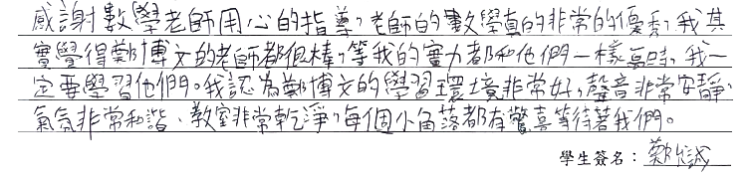 感謝數學老師用心的指導，老師的數學真的非常的優秀，我其
實覺得鄭博文的老師都很棒，等我的實力都和他們一樣高時，我一
定要學習他們。我認為鄭博文的學習環境非常好，聲音非常安靜，
氣氛非常和諧、教室非常乾淨，每個小角落都有驚喜等待著我們。
學生簽名：鄭